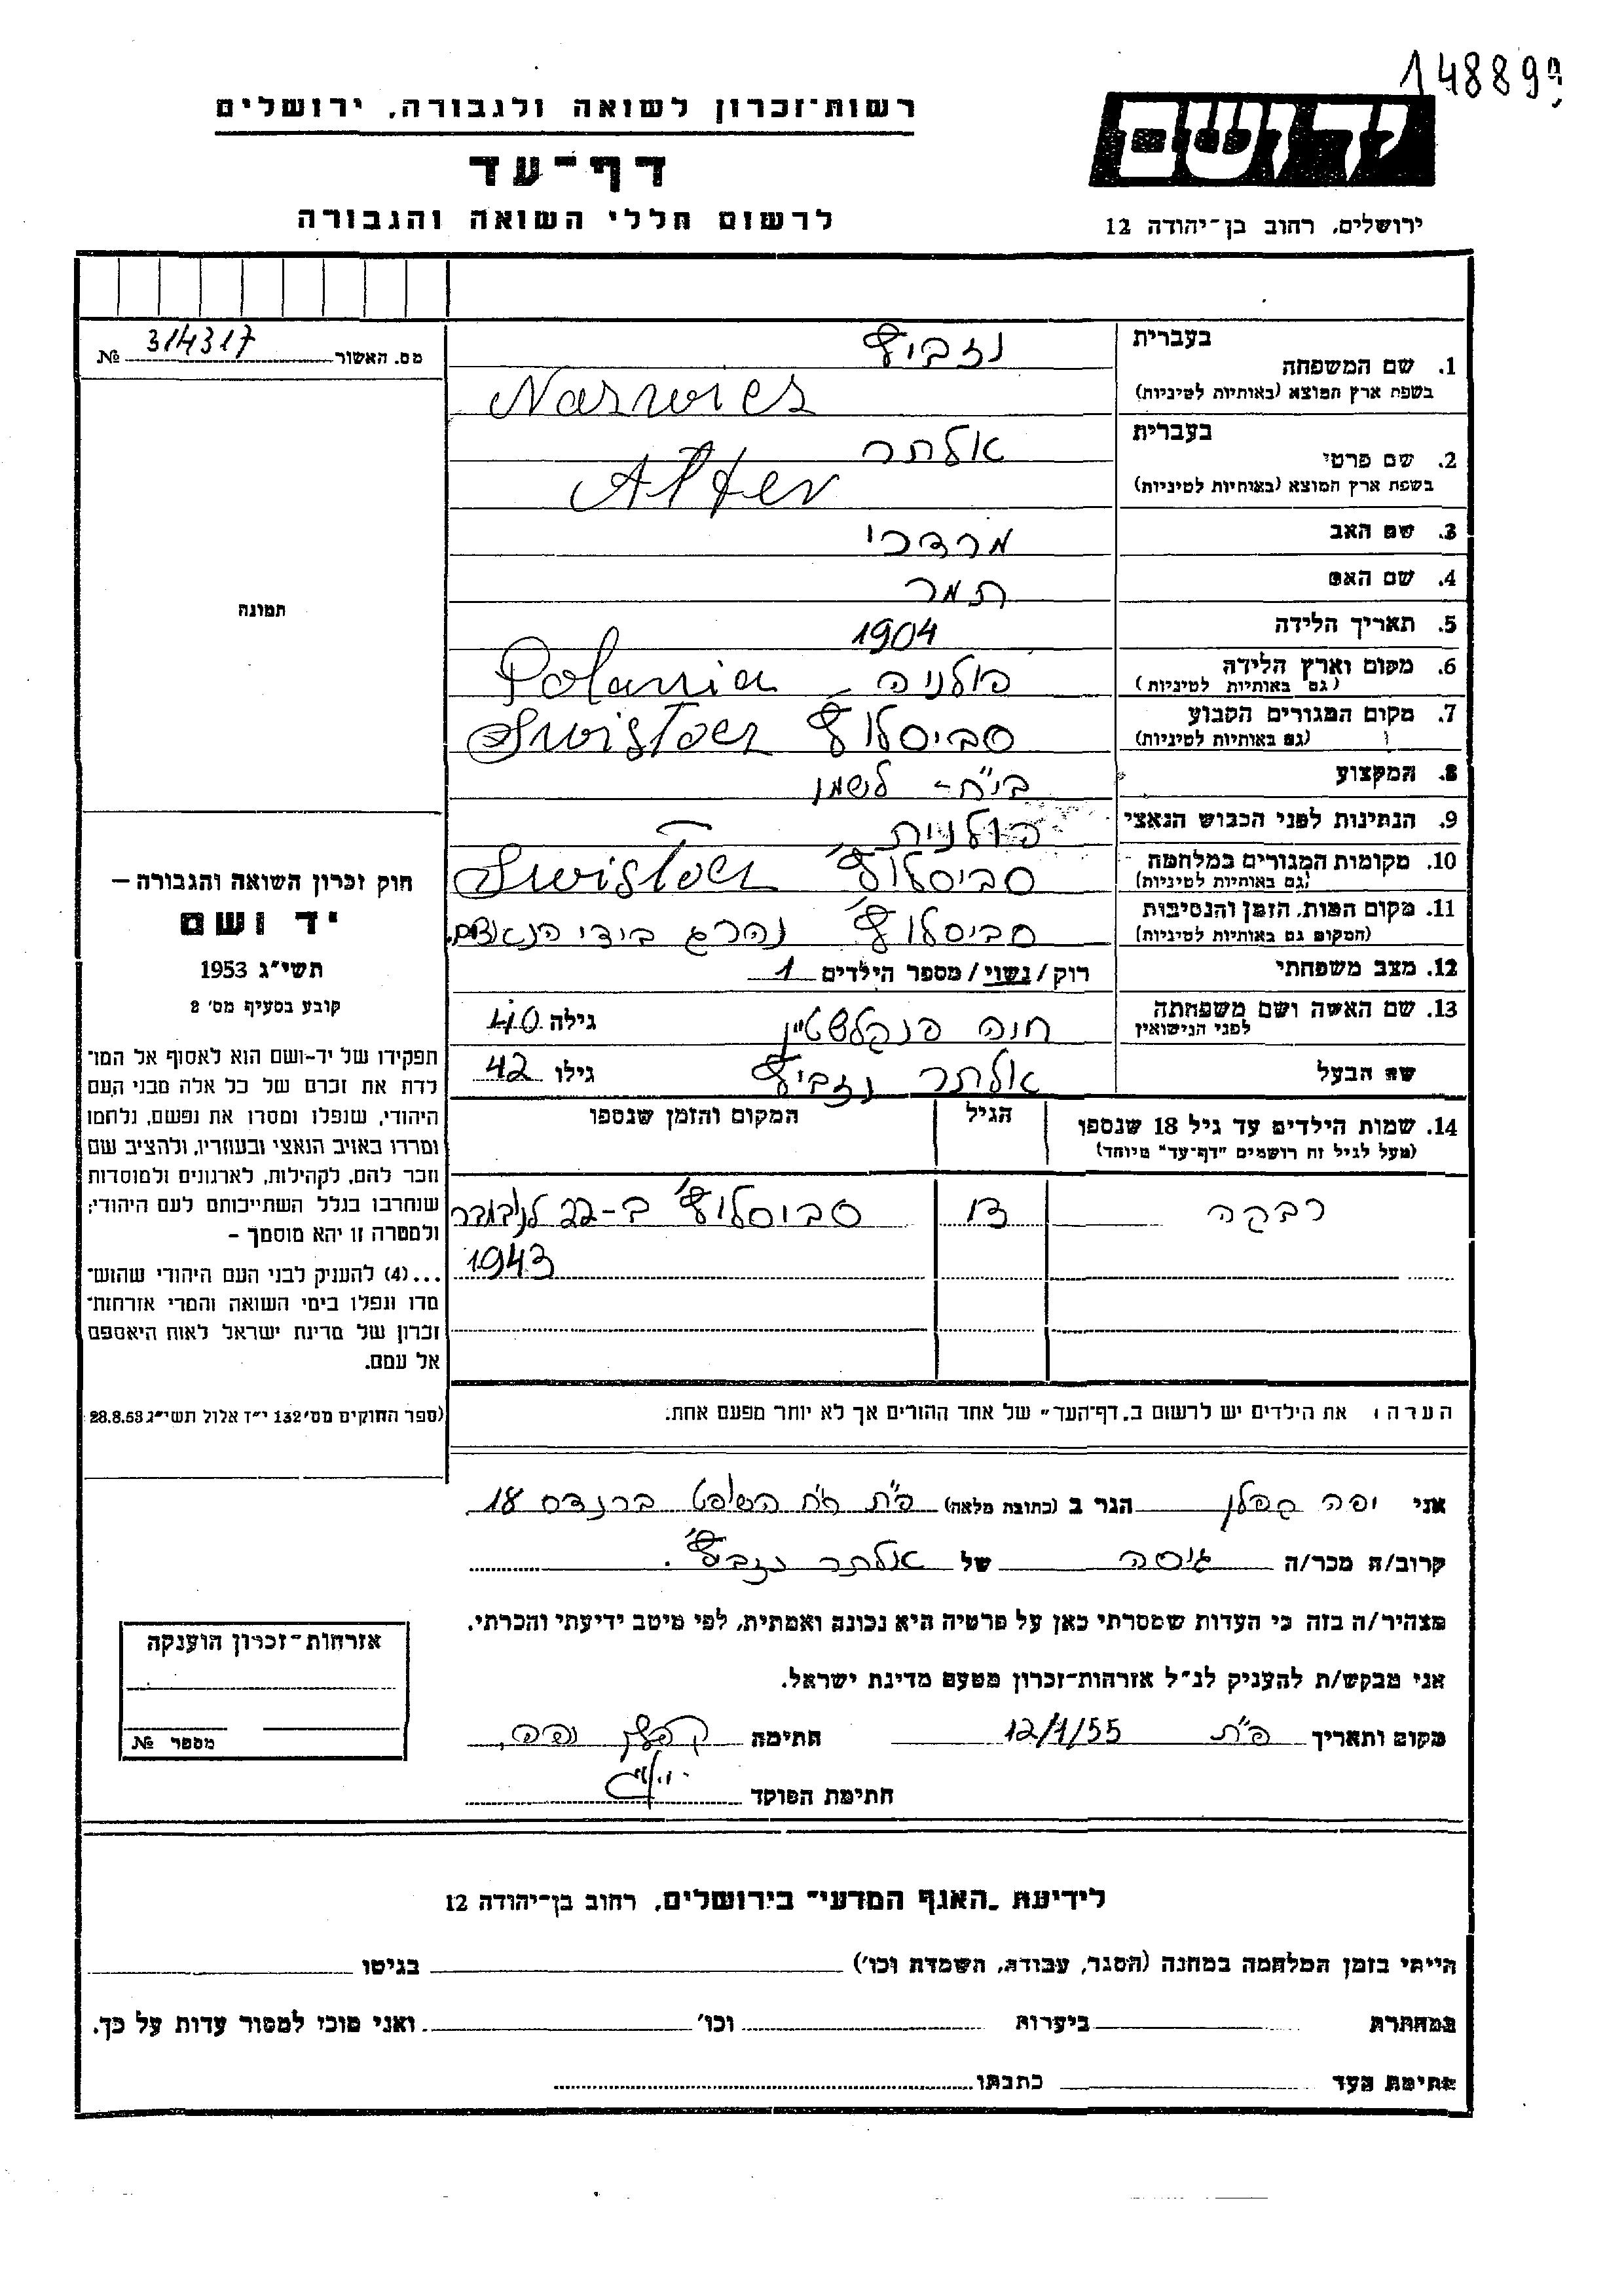 148899
רשות־זכרון לשואה ולגבורה, ירושלים
יד ושם
דף־עד
לרשום חללי השואה והגבורה
ירושלים, רחוב בן־יהודה 12
מס. האשור 314317 №
בעברית
1. שם המשפחה
נזביץ
(בשפת ארץ המוצא (באותיות לטיניות
בעברית
2. שם פרטי
אלתר
(בשפת ארץ המוצא (באותיות לטיניות
Alter
3. שם האב מרדכי
4. שם האם תמר
5. תאריך הלידה 1904
6. מקום וארץ הלידה פולניה - Polania
(גם באותיות לטיניות)
7. מקום המגורים הקבוע סביסלוץ
(גם באותיות לטיניות)
8. המקצוע ביח"ר - לשמן
9. הנתינות לפני הכבוש הנאצי פולנית
10. מקומות המגורים במלחמה סביסלוץ'
(גם באותיות לטיניות)
11. מקום המות, הזמן והנסיבות סביסלוץ' נהרג בידי הנאצים.
(המקום גם באותיות לטיניות)
12. מצב משפחתי רוק/נשוי/מספר הילדים 1
13. שם האשה ושם משפחתה חנה פנקלשטיין גילה 40
לפני הנישואין
שם הבעל אלתר נזביץ גילו 42
14. שמות הילדים עד גיל 18 שנספו
(מעל לגיל זה רושמים "דף־עד" מיוחד)
הגיל
המקום והזמן שנספו
רבקה 13 סביסלוץ' ב-22
1943
הערה: את הילדים יש לרשום ב„דף־העד" של אחד ההורים אך לא יותר מפעם אחת.
אני יפה קפלן הגר ב (כתובת מלאה) פ"ת רח' השופט ברנדס 18
קרוב/ה מכר/ה גיסה של אלתר נזביץ'.
מצהיר/ה בזה כי העדות שמסרתי כאן על פרטיה היא נכונה ואמתית, לפי מיטב ידיעתי והכרתי.
אני מבקש/ת להעניק לנ"ל אזרחות־זכרון מטעם מדינת ישראל.
מקום ותאריך פ"ת 12/1/55 חתימה קפלן יפה
חתימת הפוקד
תמונה
חוק זכרון השואה והגבורה —
יד ושם
תשי"ג 1953
קובע בסעיף מס' 2
תפקידו של יד-ושם הוא לאסוף אל המו־
לדת את זכרם של כל אלה מבני העם
היהודי, שנפלו ומסרו את נפשם, נלחמו
ומרדו באויב הנאצי ובעוזריו, ולהציב שם
וזכר להם, לקהילות, לארגונים ולמוסדות
שנחרבו בגלל השתייכותם לעם היהודי;
ולמטרה זו יהא מוסמך —
...(4) להעניק לבני העם היהודי שהוש־
מדו ונפלו בימי השואה והמרי אזרחות־
זכרון של מדינת ישראל לאות היאספם
אל עמם.
(ספר החוקים מס' 132 י"ז אלול תשי"ג 28.8.53
אזרחות־זכרון הוענקה
מספר №
לידיעת „האגף המדעי" בירושלים, רחוב בן־יהודה 12
הייתי בזמן המלחמה במחנה (הסגר, עבודה, השמדה וכו') בגיטו
במחתרת ביערות וכו' ואני מוכן למסור עדות על כך.
חתימת העד כתבתו